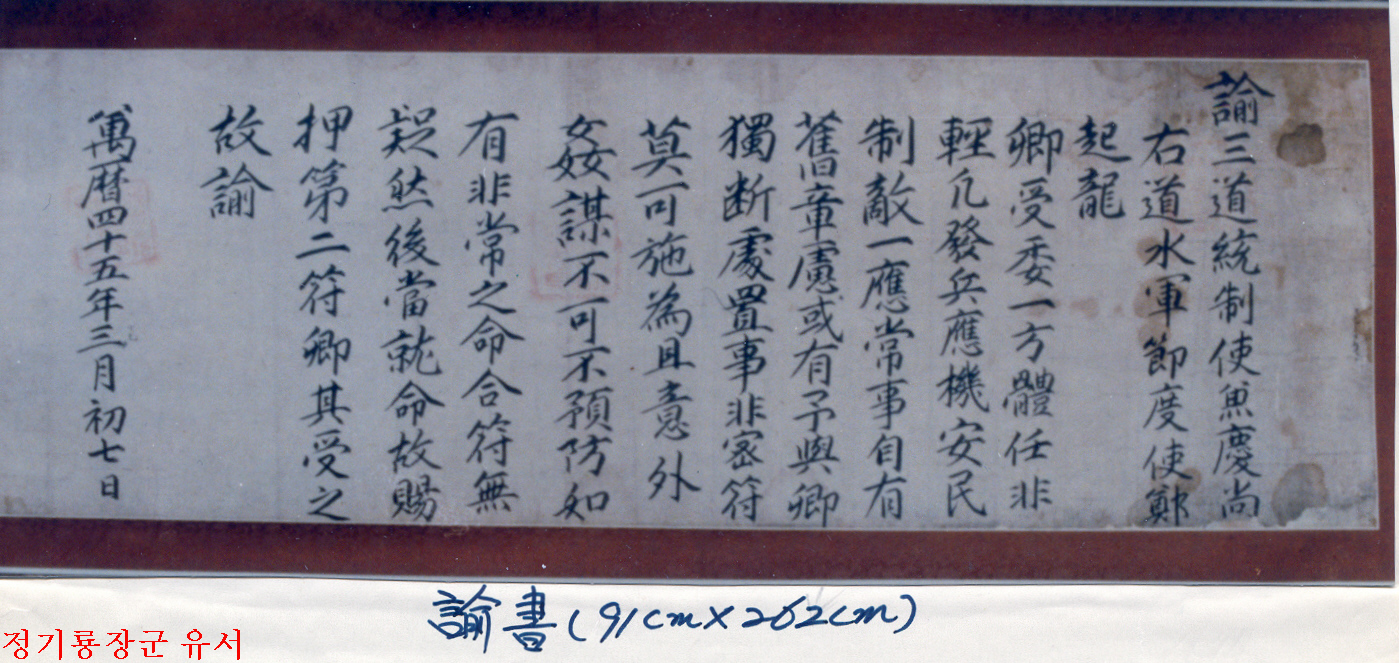 諭三道統制使兼慶尚
右道水軍節度使鄭
起龍
卿受委一方體任非
輕凡發兵應機安民
制敵一應常事自有
舊章慮或有予與卿
獨断處置事非密符
莫可施為且意外
姦謀不可不預防如
有非常之命合符無
疑然後當就命故賜
押第二符卿其受之
故諭
萬曆四十五年三月初七日
諭書(91cm×262cm)
정기룡장군 유서